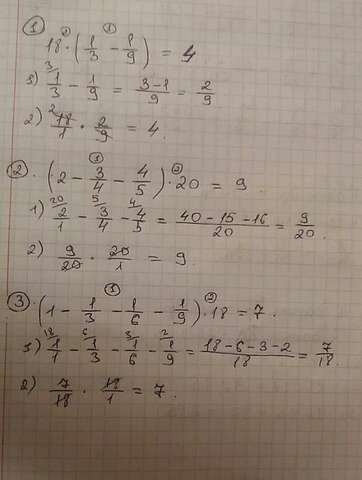 ① 18 · (1/3 - 1/9) = 4
1) 1/3 - 1/9 = 3-1/9 = 2/9
2) 18/1 · 2/9 = 4.
② · (2 - 3/4 - 4/5) · 20 = 9.
1) 2/1 - 3/4 - 4/5 = 40-15-16/20 = 9/20.
2) 9/20 · 20/1 = 9.
③ · (1 - 1/3 - 1/6 - 1/9) · 18 = 7.
1) 1/1 - 1/3 - 1/6 - 1/9 = 18-6-3-2/18 = 7/18.
2) 7/18 · 18/1 = 7.